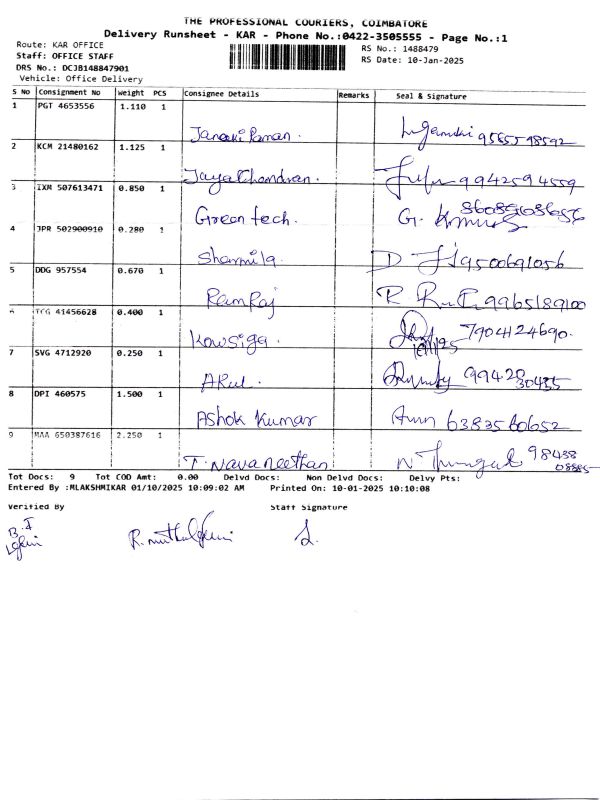 THE PROFESSIONAL COURIERS, COIMBATORE
Delivery Runsheet - KAR - Phone No.:0422-3505555 - Page No.:1
Route: KAR OFFICE
Staff: OFFICE STAFF
DRS No.: DCJB148847901
Vehicle: Office Delivery
RS No.: 1488479
RS Date: 10-Jan-2025
S No Consignment No Weight PCS Consignee Details Remarks Seal & Signature
1 PGT 4653556 1.110 1 Janaki Raman. 9565598592
2 KCM 21480162 1.125 1 Jaya Chandran. 9942594559
3 IXM 507613471 0.850 1 Green tech. G.
4 JPR 502900910 0.280 1 Sharmila. D 9500691056
5 DDG 957554 0.670 1 RamRaj R 9965189100
6 TCG 41456628 0.400 1 Kowsiga. 7904124690.
7 SVG 4712920 0.250 1 ARul. 30435
8 DPI 460575 1.500 1 Ashok Kumar 6383560652
9 MAA 650387616 2.250 1 T. Navaneethan 98438
Tot Docs: 9 Tot COD Amt: 0.00 Delvd Docs: Non Delvd Docs: Delvy Pts:
Entered By :MLAKSHMIKAR 01/10/2025 10:09:02 AM Printed On: 10-01-2025 10:10:08
Verified By Staff Signature